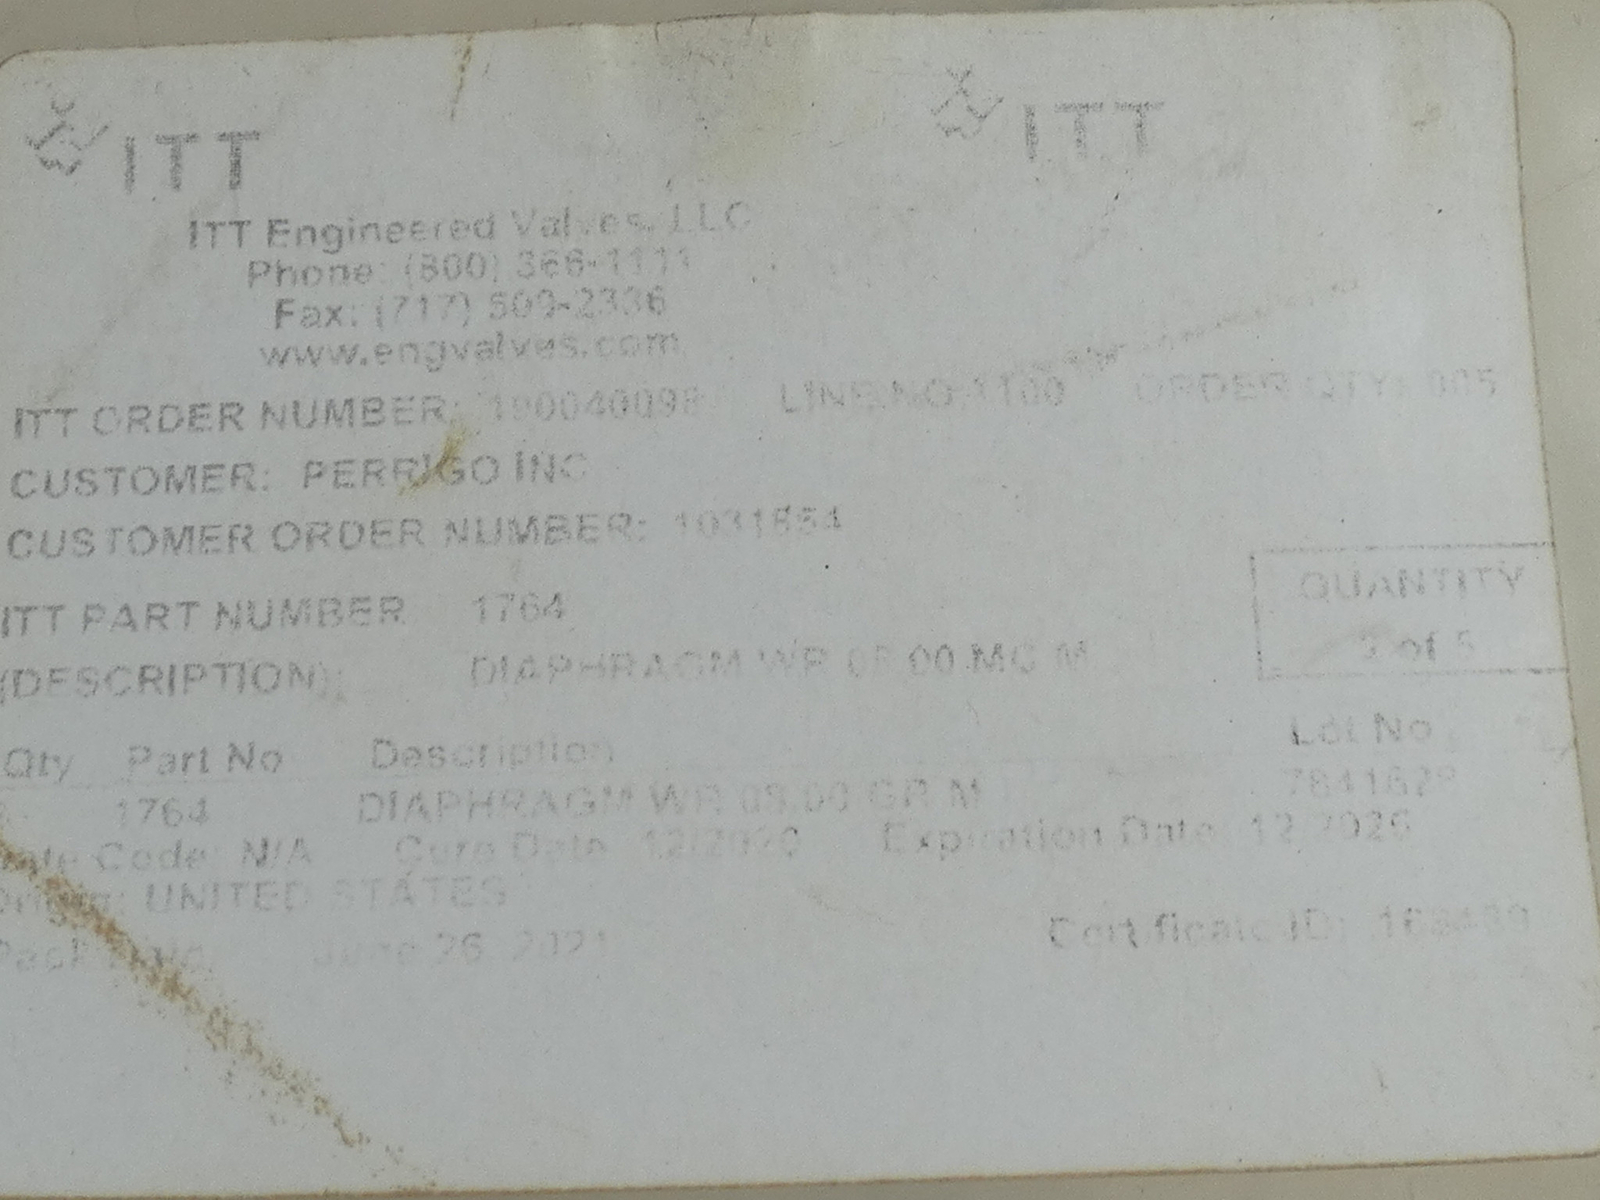 ITT ITT
ITT Engineered Valves, LLC
Phone: (800) 366-1111
Fax: (717) 509-2336
www.engvalves.com
ITT ORDER NUMBER: LINE NO 1100 ORDER QTY: 005
CUSTOMER: PERRIGO INC
CUSTOMER ORDER NUMBER:
ITT PART NUMBER 1764
QUANTITY
(DESCRIPTION): DIAPHRAGM WR M
of 5
Qty Part No Description Lot No
1764 DIAPHRAGM WR GR M
Code: N/A Cure Date 12/2020 Expiration Date 12/2026
Origin: UNITED STATES
June 26, 2021 Certificate ID: